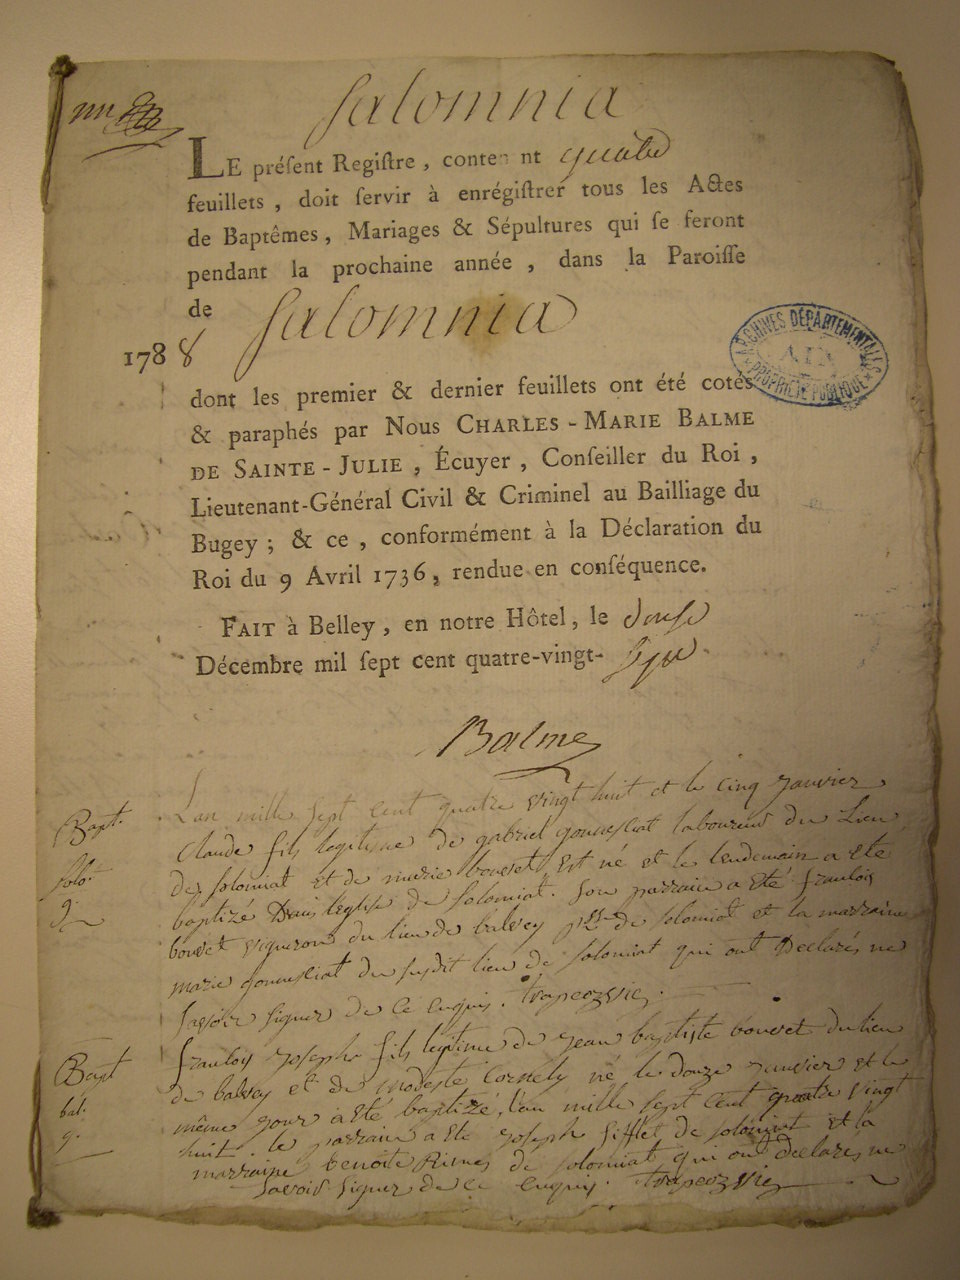 Salomnia
LE préſent Regiſtre, contenant quatre
feuillets, doit ſervir à enrégiſtrer tous les Actes
de Baptêmes, Mariages & Sépultures qui ſe feront
pendant la prochaine année, dans la Paroiſſe
de Salomnia
1788
ARCHIVES DÉPARTEMENTALES
AIN
PROPRIÉTÉ PUBLIQUE
dont les premier & dernier feuillets ont été cotés
& paraphés par Nous CHARLES-MARIE BALME
DE SAINTE-JULIE, Écuyer, Conſeiller du Roi,
Lieutenant-Général Civil & Criminel au Bailliage du
Bugey; & ce, conformément à la Déclaration du
Roi du 9 Avril 1736, rendue en conſéquence.
FAIT à Belley, en notre Hôtel, le douſe
Décembre mil ſept cent quatre-vingt-ſept
Balme
Bapt.
Solo.
g.
L'an mille sept cent quatre vingt huit et le cinq janvier
Claude fils legitime de gabriel laboureur du Lieu
de solomiat et de marie bouvet est né et le lendemain a eté
baptizé Dans l'eglise de solomiat. son parrain a eté françois
bouvet vigneron du lieu de balvey psse de solomiat et la marraine
marie du susdit lieu de solomiat qui ont declarés ne
savoir signer de ce enquis. trapeozvie
Bapt
bal.
g.
françois joseph fils legitime de jean baptiste bouvet du lieu
de balvey et de modeste Cornely né le douze janvier et le
même jour a eté baptizé, l'an mille sept cent quatre vingt
huit. le parrain a eté joseph sifflet de solomiat et la
marraine benoite de solomiat qui ont declarés ne
savoir signer de ce enquis. trapeozvie